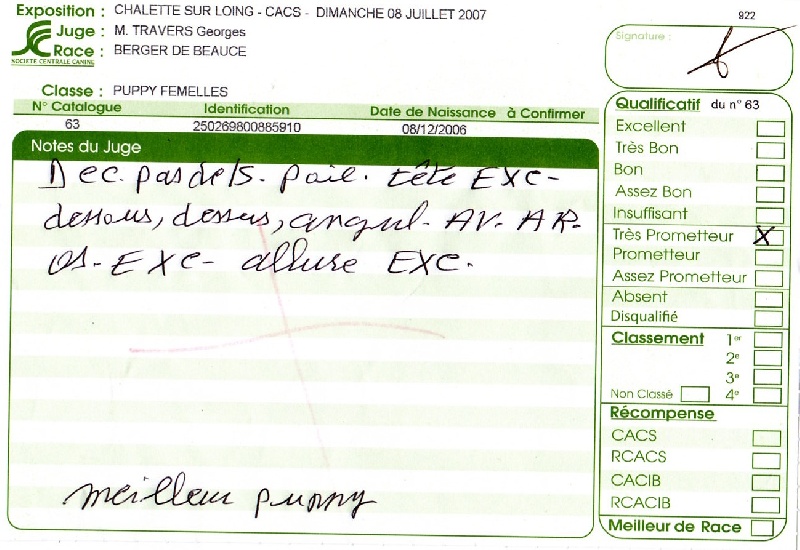 Exposition : CHALETTE SUR LOING - CACS - DIMANCHE 08 JUILLET 2007
Juge : M. TRAVERS Georges
Race : BERGER DE BEAUCE
SOCIETE CENTRALE CANINE
922
Signature :
Classe : PUPPY FEMELLES
N° Catalogue Identification Date de Naissance à Confirmer
63 250269800885910 08/12/2006
Notes du Juge
Dec. pas de ts. poil. tête EXC-
dessous, dessus, angul- AV. AR-
os- EXC- allure EXC.
meilleur puppy
Qualificatif du n° 63
Excellent
Très Bon
Bon
Assez Bon
Insuffisant
Très Prometteur X
Prometteur
Assez Prometteur
Absent
Disqualifié
Classement 1er
2e
3e
Non Classé 4e
Récompense
CACS
RCACS
CACIB
RCACIB
Meilleur de Race